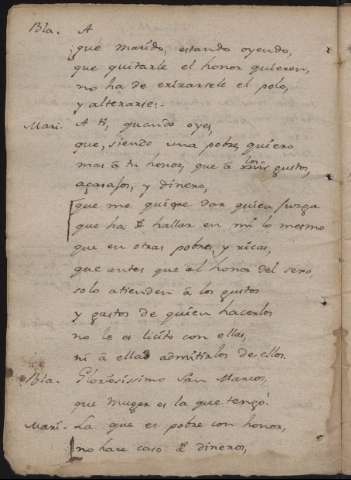 Bla. A
¿què marido, estando oyendo,
que quitarle el honor quieren,
no ha de erizarsele el pelo,
y alterarse?
Mari. A ti, quando oyes,
que, siendo una pobre, quiero
mas â tu honor, que â los mis gustos,
agasajos, y dinero,
que me quiere dar quien juzga
que ha de hallar en mi lo mesmo
que en otras pobres, y ricas,
que antes que al honor del sexo,
solo atienden â los gustos
y gastos de quien hacerlos
no le es licito con ellas,
ni â ellas admitirlos de ellos.
Bla. Gloriosissimo San Marcos,
que muger es la que tengo!
Mari. La que es pobre con honor,
no hace caso de dineros,